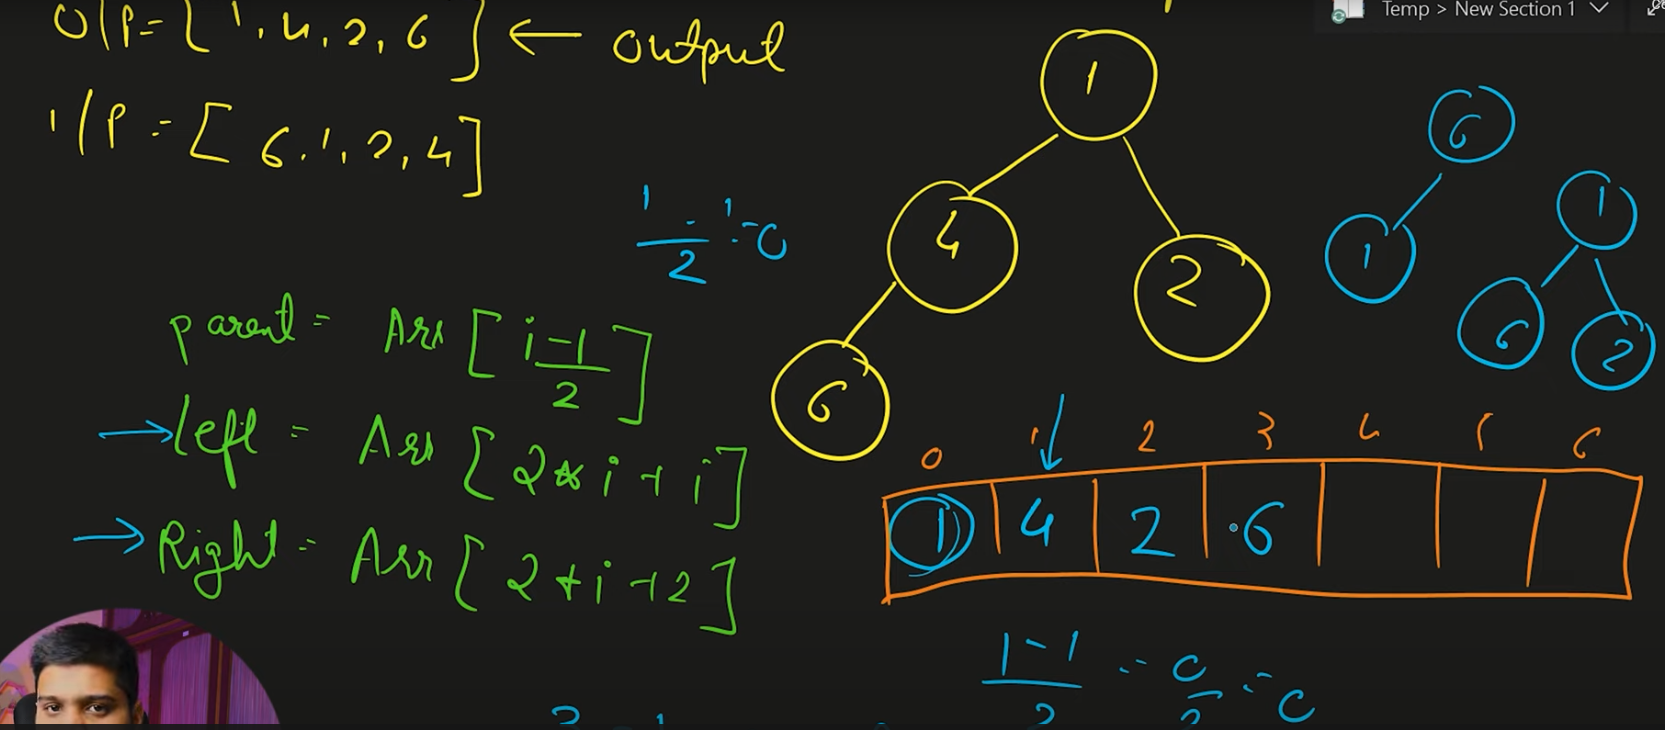 Temp > New Section 1
O/P = [ 1, 4, 2, 6 ] ← output
I/P = [ 6, 1, 2, 4 ]
1/2 = 1/2 = 0
parent = Arr [ i-1 / 2 ]
→ left = Arr [ 2 * i + i ]
→ Right = Arr [ 2 + i + 2 ]
1
4
2
6
6
1
1
6
2
0 1 2 3 4 5 6
1 4 2 6
1-1 / 2 = 0 / 2 = 0